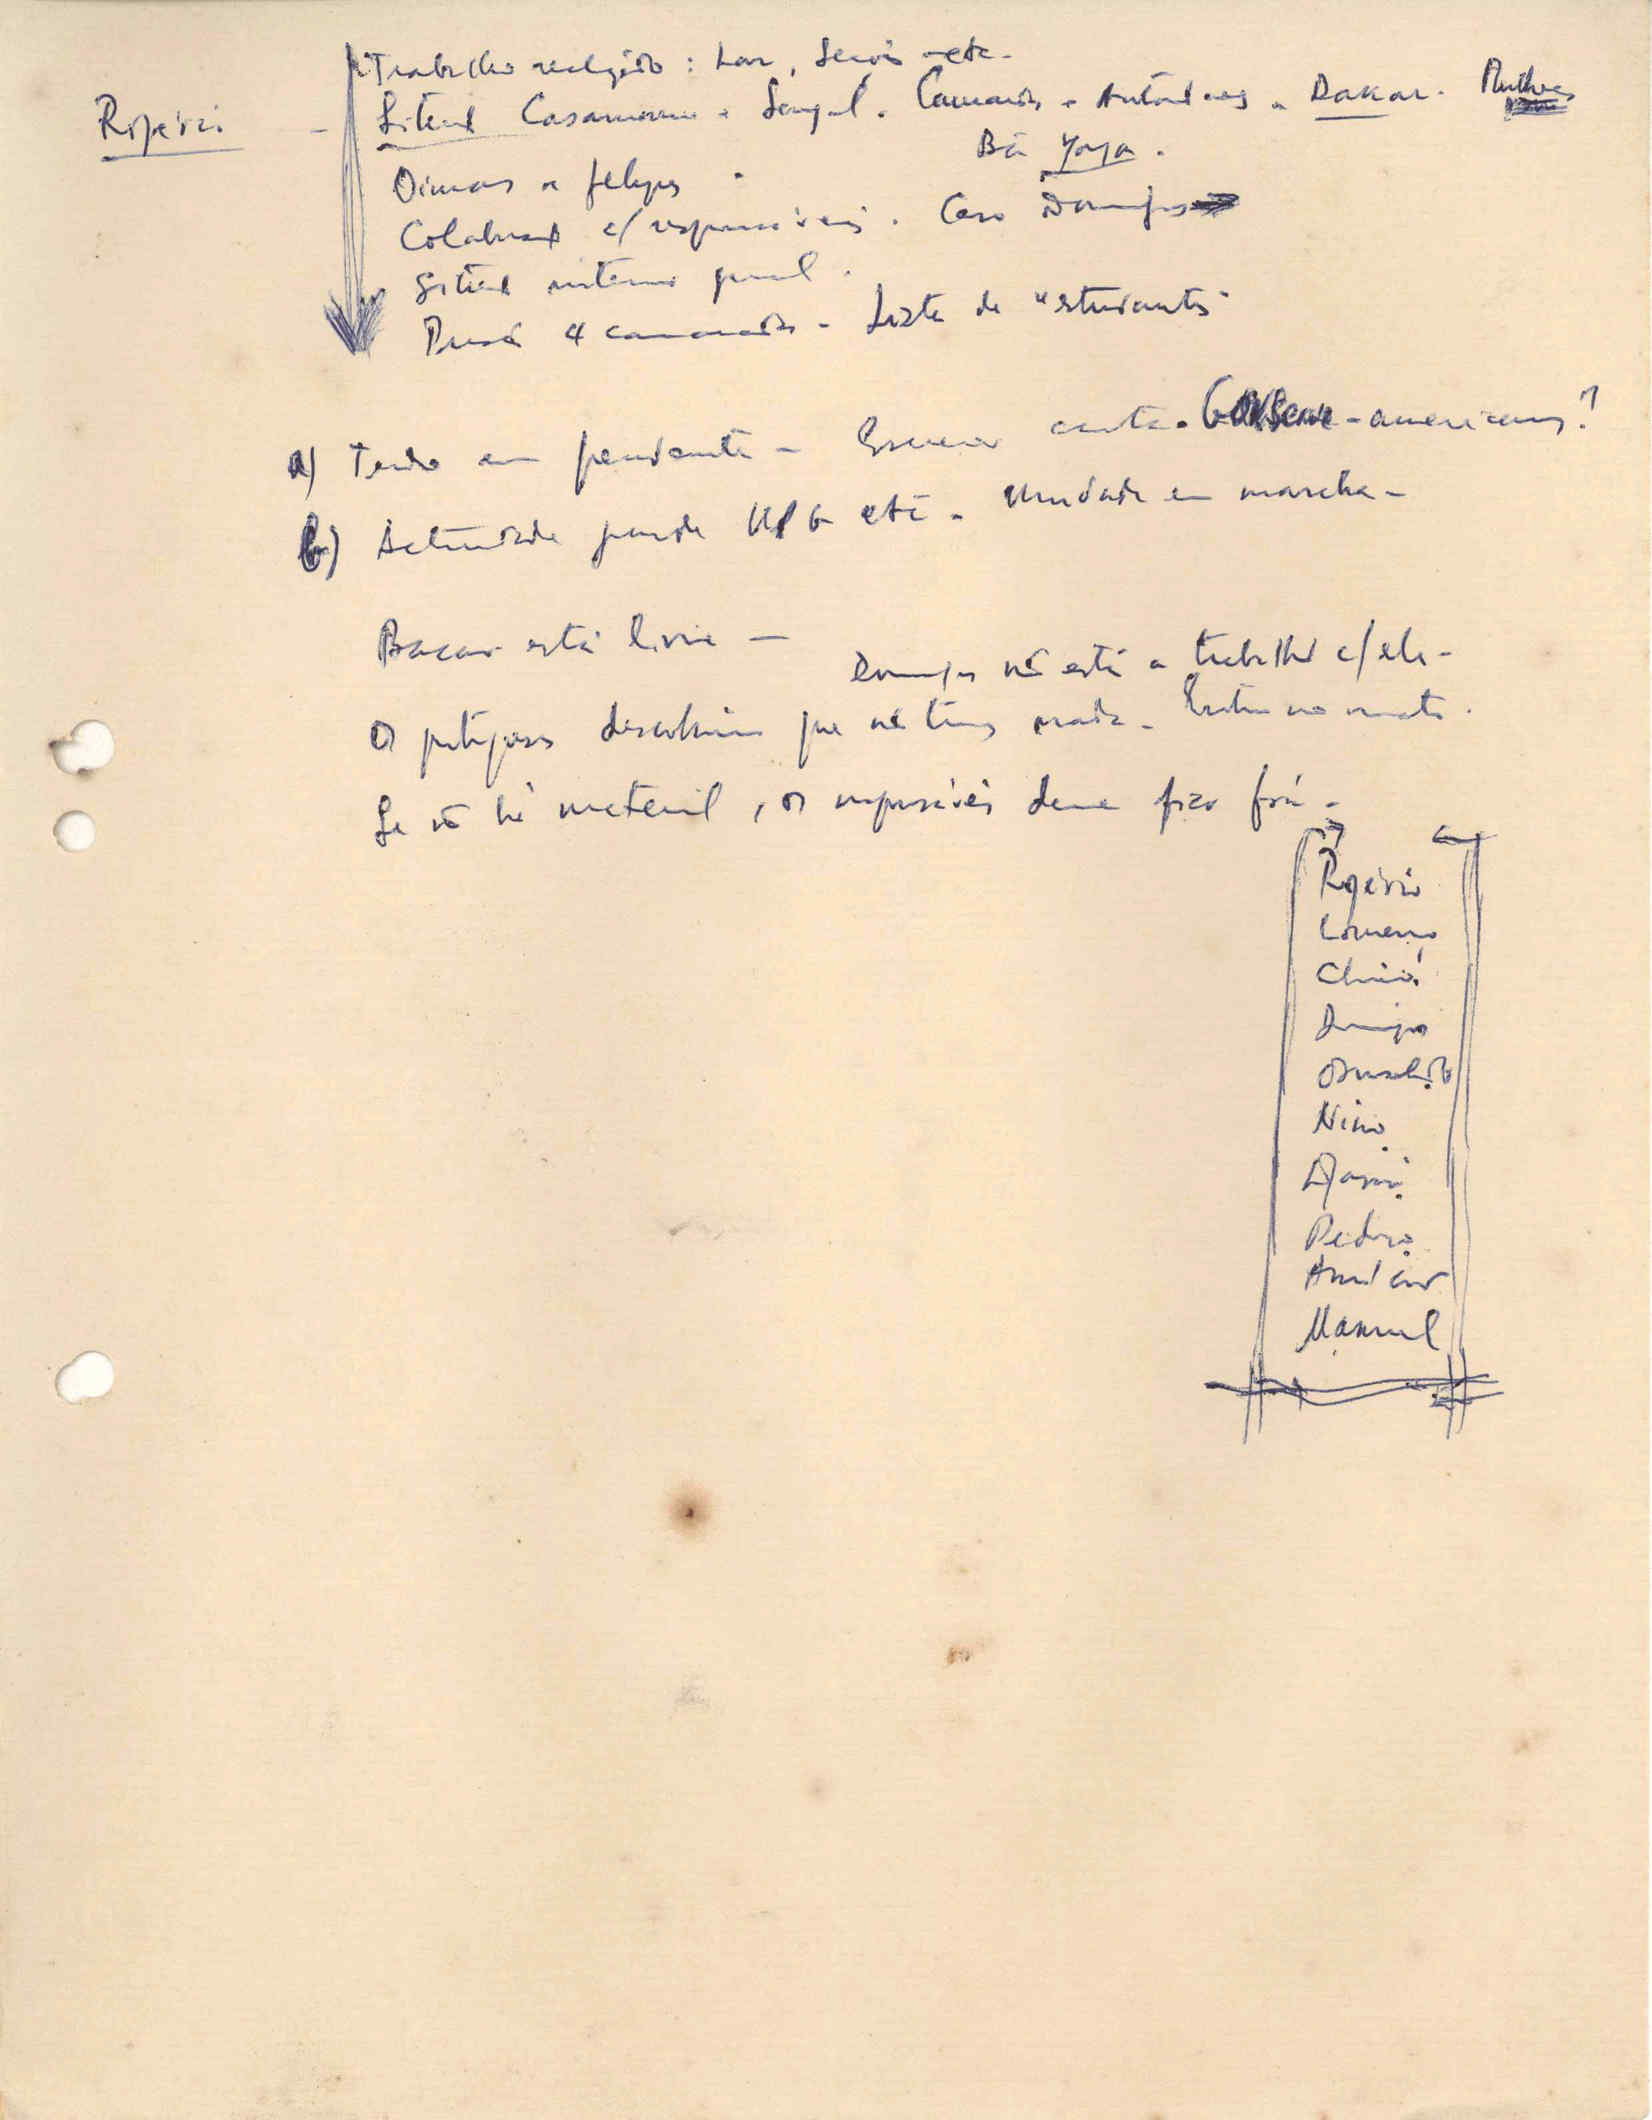 Trabalho realizado: Lar, etc.
Rogério - Situação Casamance. Senegal. Camaradas. Autoridades. Dakar. Mulheres
Bâ Yaya.
Colaboração c/ responsáveis. Caso Domingos
Situação interna geral.
Prisão 4 camaradas. Lista de "estudantes"
a) Tudo em pendente - Escrever carta. - americanos?
b) Actividade etc. Unidade em marcha -
Bacar está livre - Domingos não está a trabalhar c/ ele -
Os portugueses descobriram que não temos nada. Entram no mato.
Se não há material, os responsáveis devem ficar fora.
Rogério
Lourenço
Chico
Domingos
Osvaldo
Nino
Pedro
Manuel